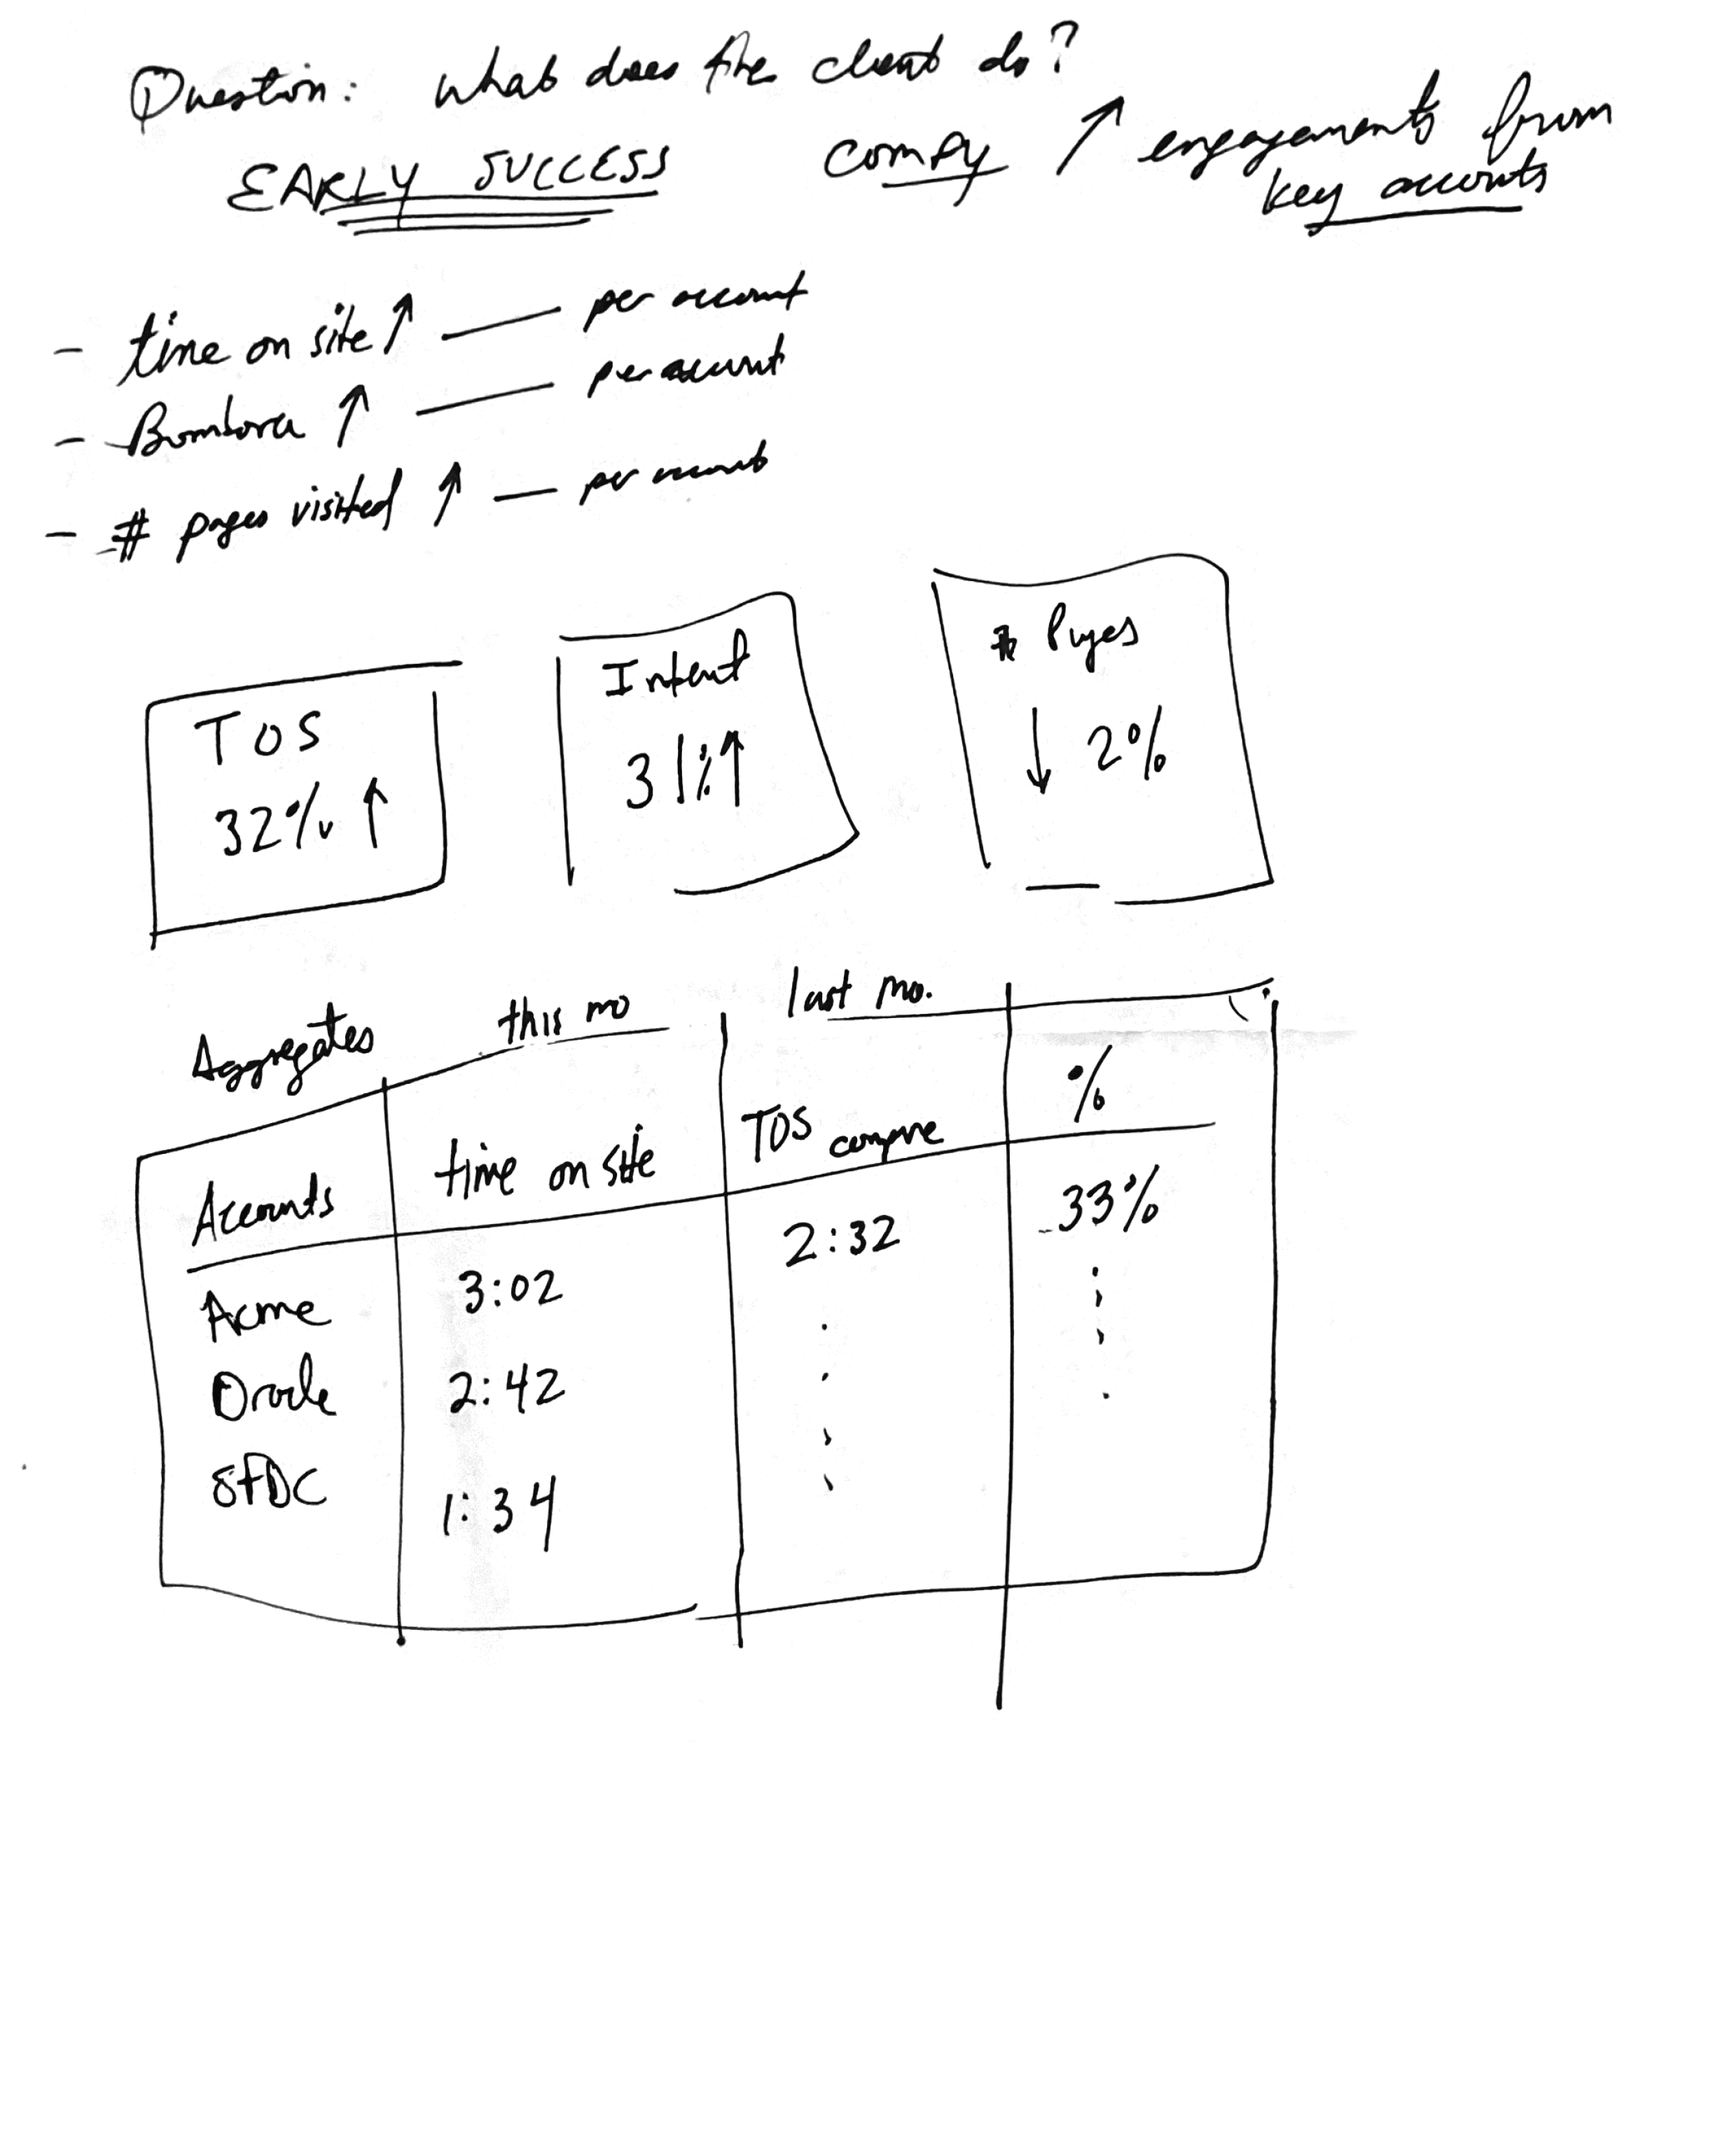 Question: what does the client do?
EARLY SUCCESS
compy ↑ engagements from
key accounts
- time on site ↑ — per account
- Bombora ↑ — per account
- # pages visited ↑ — per account
TOS
32% ↑
Intent
31% ↑
# Pages
↓ 2%
Aggregates this mo last mo.
Accounts time on site TOS compare %
Acme 3:02 2:32 33%
Oracle 2:42
SFDC 1:34